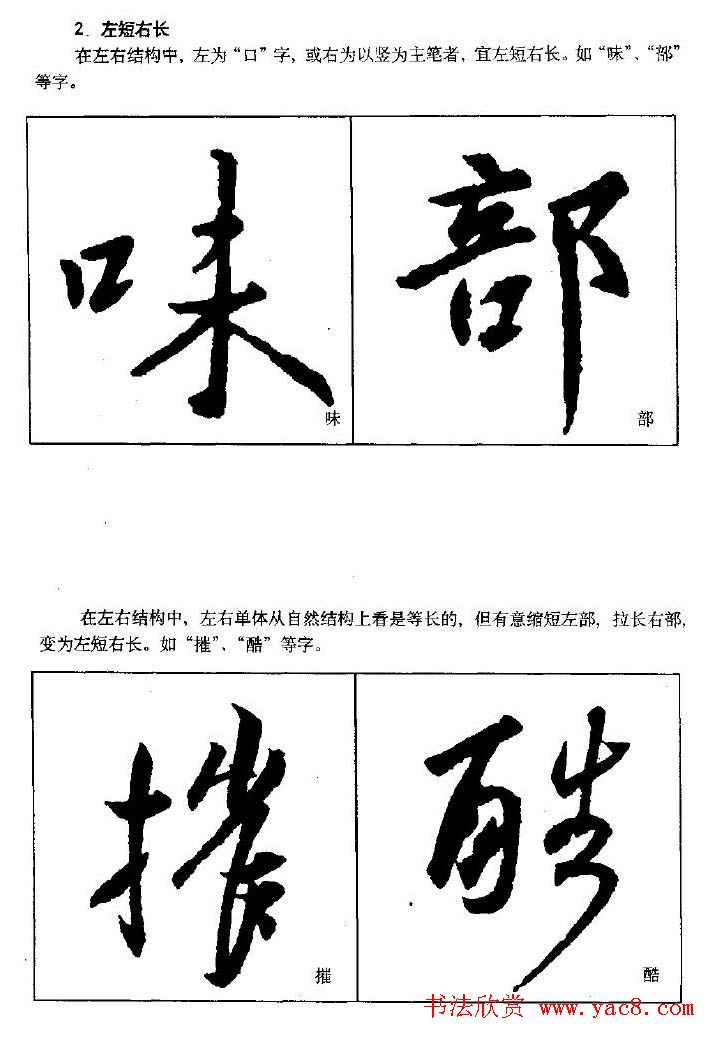 2．左短右长
在左右结构中，左为“口”字，或右为以竖为主笔者，宜左短右长。如“味”、“部”
等字。
味 部
味 部
在左右结构中，左右单体从自然结构上看是等长的，但有意缩短左部，拉长右部，
变为左短右长。如“摧”、“酷”等字。
摧 酷
摧 酷
书法欣赏 www.yac8.com